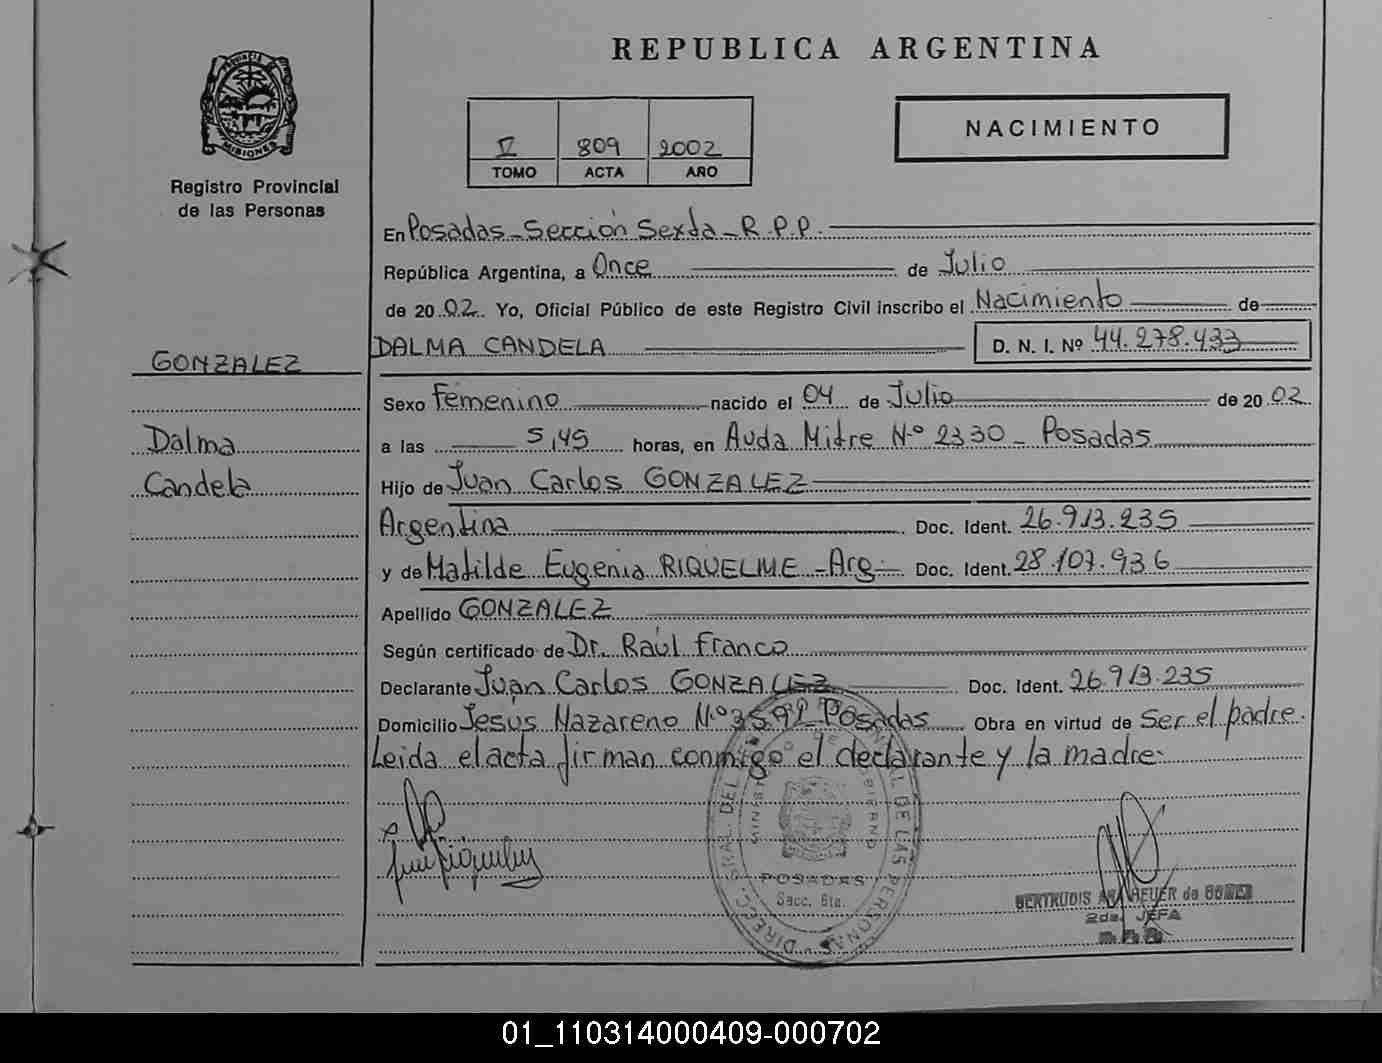 REPUBLICA ARGENTINA
PROVINCIA DE
MISIONES
Registro Provincial
de las Personas
V 809 2002
TOMO ACTA AÑO
NACIMIENTO
En Posadas - Sección Sexta - R.P.P.
República Argentina, a Once de Julio
de 2002. Yo, Oficial Público de este Registro Civil inscribo el Nacimiento de
DALMA CANDELA D. N. I. Nº 44.278.433
GONZALEZ
Dalma
Candela
Sexo Femenino nacido el 04 de Julio de 2002
a las 5,45 horas, en Avda Mitre Nº 2330 - Posadas
Hijo de Juan Carlos GONZALEZ
Argentina Doc. Ident. 26.913.235
y de Matilde Eugenia RIQUELME - Arg. Doc. Ident. 28.107.936
Apellido GONZALEZ
Según certificado de Dr. Raúl Franco
Declarante Juan Carlos GONZALEZ Doc. Ident. 26.913.235
Domicilio Jesús Nazareno Nº Posadas Obra en virtud de Ser el padre.
Leida el acta firman conmigo el declarante y la madre.
DIRECC. GRAL. DEL DE LAS PERSONAS
MINISTERIO DE GOBIERNO
POSADAS
Secc. 6ta.
GERTRUDIS de
2da. JEFA
01_110314000409-000702